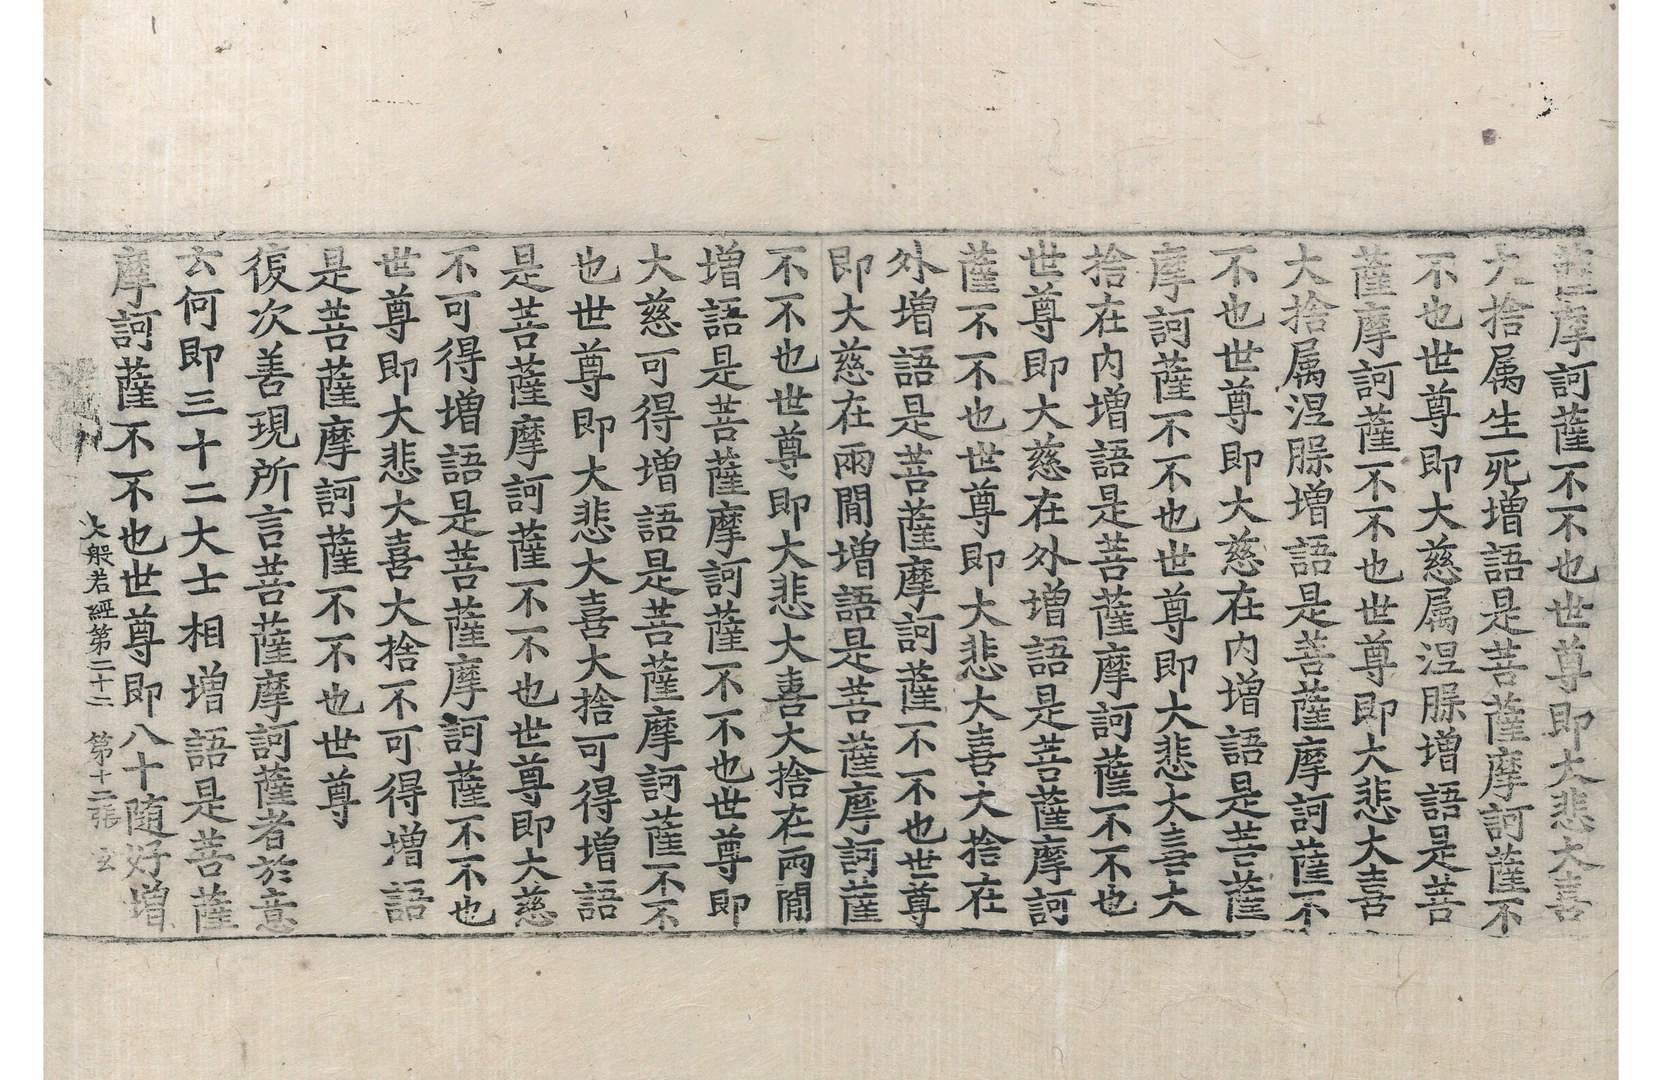 薩摩訶薩不不也世尊即大悲大喜
大捨属生死增語是菩薩摩訶薩不
不也世尊即大慈属涅槃增語是菩
薩摩訶薩不不也世尊即大悲大喜
大捨属涅槃增語是菩薩摩訶薩不
不也世尊即大慈在内增語是菩薩
摩訶薩不不也世尊即大悲大喜大
捨在内增語是菩薩摩訶薩不不也
世尊即大慈在外增語是菩薩摩訶
薩不不也世尊即大悲大喜大捨在
外增語是菩薩摩訶薩不不也世尊
即大慈在兩閒增語是菩薩摩訶薩
不不也世尊即大悲大喜大捨在兩閒
增語是菩薩摩訶薩不不也世尊即
大慈可得增語是菩薩摩訶薩不不
也世尊即大悲大喜大捨可得增語
是菩薩摩訶薩不不也世尊即大慈
不可得增語是菩薩摩訶薩不不也
世尊即大悲大喜大捨不可得增語
是菩薩摩訶薩不不也世尊
復次善現所言菩薩摩訶薩者於意
云何即三十二大士相增語是菩薩
摩訶薩不不也世尊即八十随好增
大般若經第二十二 第十二張 玄